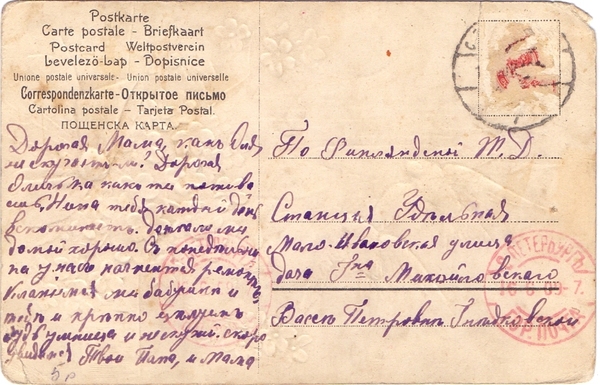 Postkarte
Carte postale - Briefkaart
Postcard Weltpostverein
Levelező-Lap - Dopisnice
Unione postale universale - Union postale universelle
Correspondenzkarte - Открытое письмо
Cartolina postale - Tarjeta Postal.
ПОЩЕНСКА КАРТА.
Дорогая Мама, какъ Оля
Дорогая
Олечька како ти пожива
ешь Нина тебя каждой день
вспоминаетъ. доехали мы
домой хорошо. Съ понедельни
ка у насъ начнется ремонтъ
Кланяемся мы бабушки и
и крепко целуемъ
будь умница и не скучай. скоро
увидимся Твои Папа, и Мама
5 р
По Финляндской Ж.Д.
Станция Удельная
Мало-Ивановская улица
дача Гна Михайловскаго
Петровнѣ